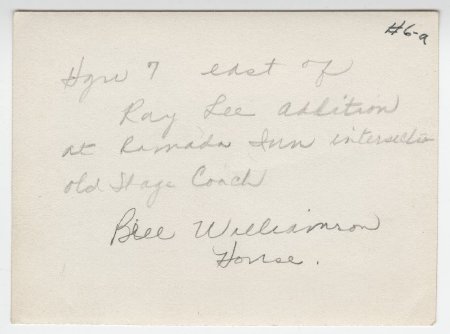 #6-a
Hgw 7 east of
Ray Lee addition
at Ramada Inn intersectio
old Stage Coach
Bill Williamson
House.